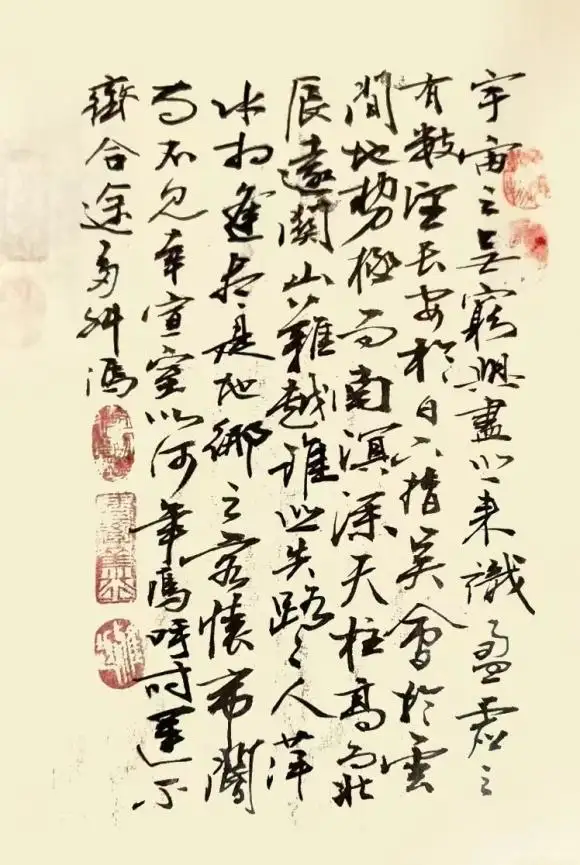 宇宙之無窮興盡悲來識盈虛之
有數望長安於日下指吳會於雲
間地勢極而南溟深天柱高而北
辰遠關山難越誰悲失路之人萍
水相逢盡是他鄉之客懷帝閽
而不見奉宣室以何年嗚呼時運不
齊命途多舛馮